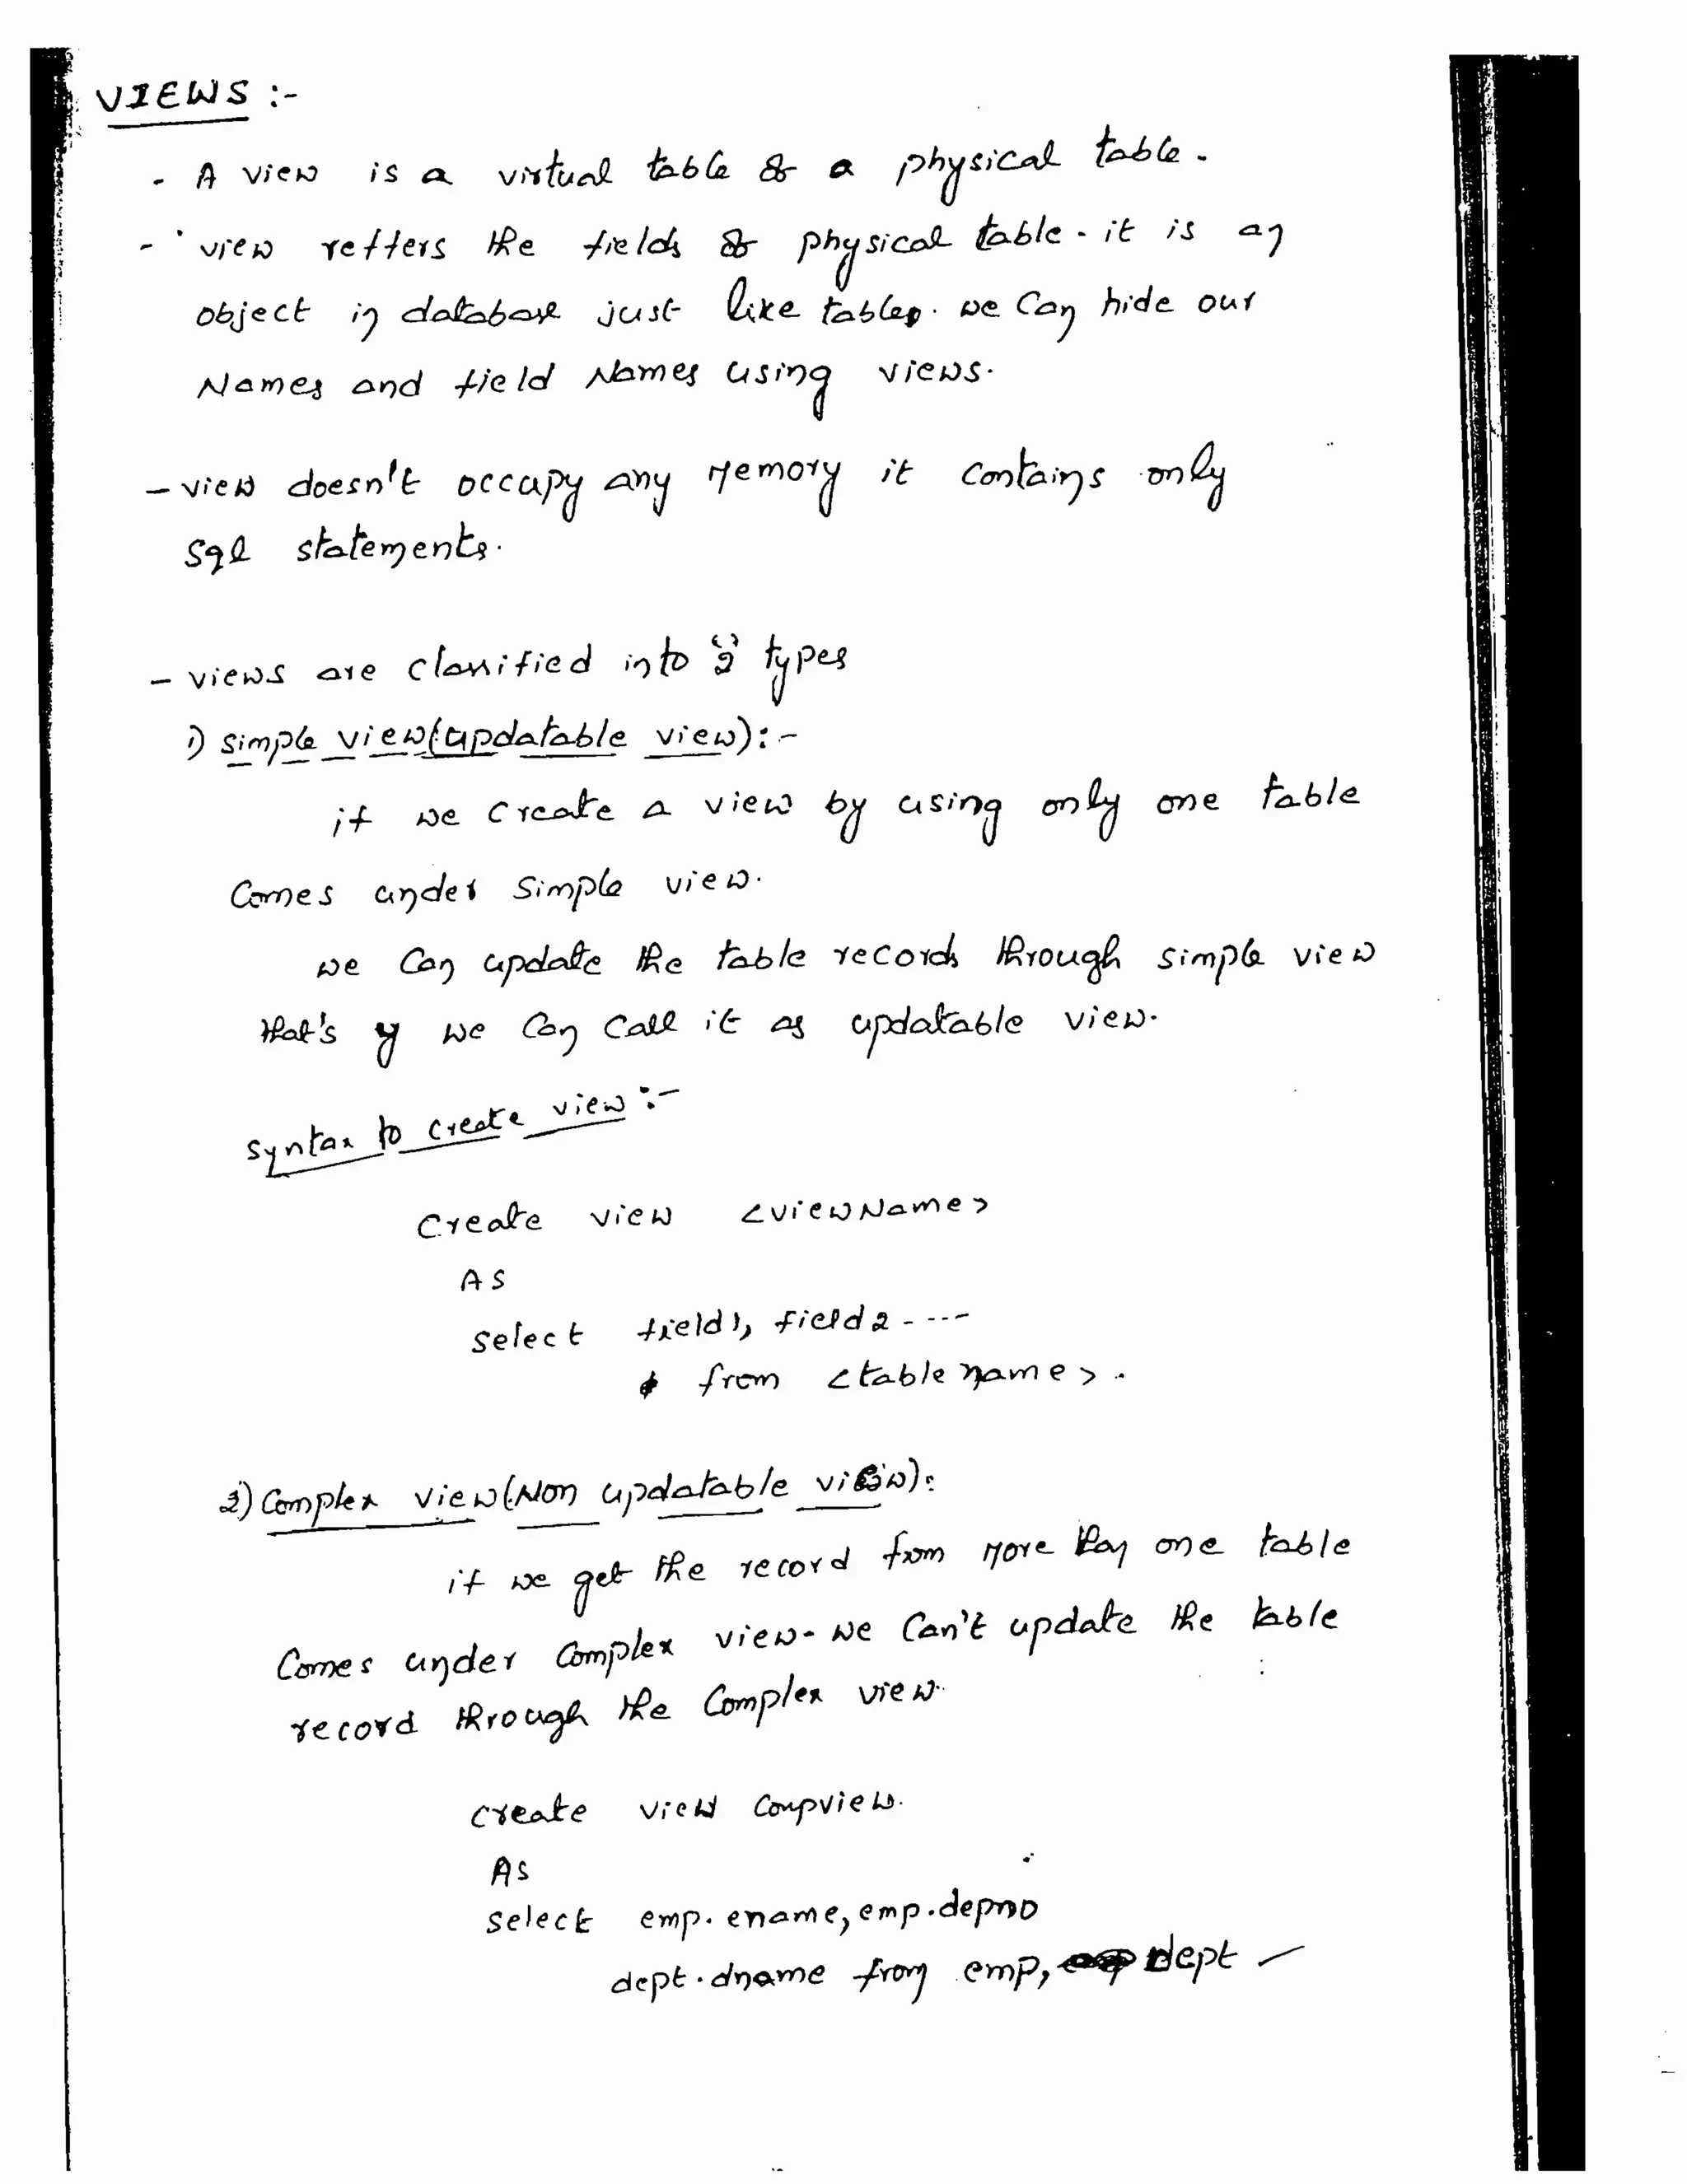 VIEWS :-
- A view is a virtual table or a physical table.
- view reffers the fields or physical table. it is an
object in database just like tables. we can hide our
Names and field Names using views.
- view doesn't occupy any Memory it contains only
sql statements.
- views are classified into 2 types
1) simple view(updatable view):-
if we create a view by using only one table
Comes under simple view.
we can update the table records through simple view
that's y we can call it as updatable view.
Syntax to create view :-
Create view <viewName>
AS
select field1, field2 - ---
from <table name>.
2) Complex view(Non updatable view):
if we get the record from More than one table
Comes under Complex view. we can't update the table
record through the Complex view.
create view compview.
As
select emp.ename, emp.depno
dept.dname from emp, dept